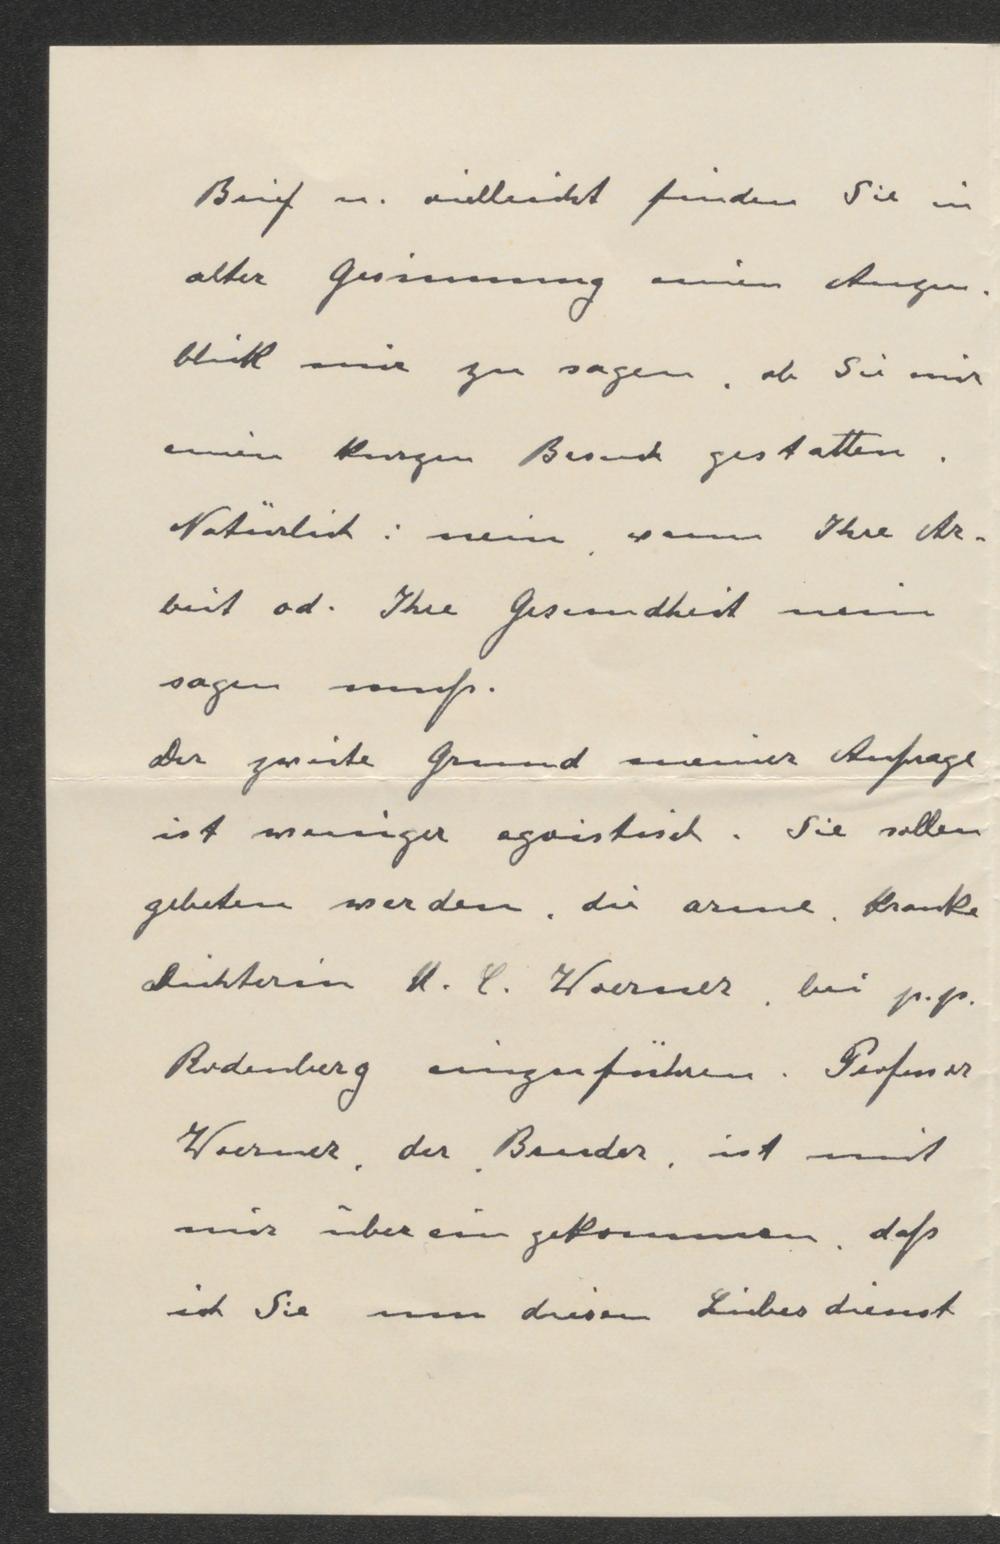 Brief u. vielleicht finden Sie in
alter Gesinnung einen Augen-
blick mir zu sagen, ob Sie mir
einen kurzen Besuch gestatten.
Natürlich: nein, wenn Ihre Ar-
beit od. Ihre Gesundheit nein
sagen muß.
Der zweite Grund meiner Anfrage
ist weniger egoistisch. Sie sollen
gebeten werden, die arme, kranke
Dichterin U. C. Woerner, bei p.p.
Rodenberg einzuführen. Professor
Woerner, der Bruder, ist mit
mir übereingekommen, daß
ich Sie um diesen Liebesdienst